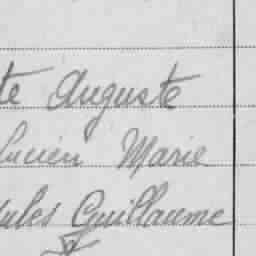 te Auguste
Lucien Marie
Jules Guillaume